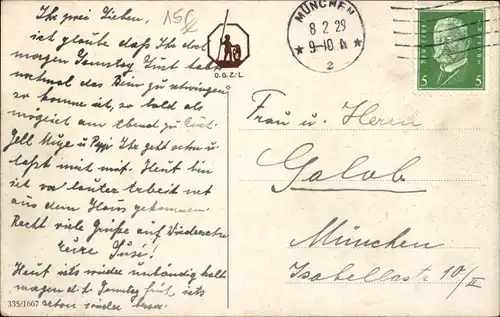 Ihr zwei Lieben,
ich glaube daß Ihr doch
morgen Samstag Lust habt
nochmal das Bein zu schwingen
so komme ich, so bald als
möglich am Abend zu Euch.
Ihr geht schon u.
laßt mich mit. Heut bin
ich vor lauter Arbeit net
aus dem Haus gekommen.
Recht viele Grüße auf Wiedersehn
Eure Susi!
Heut ists wieder unbändig kalt
morgen d. h. Samstag früh ists
schon wieder
335/1667
15 ch
O.G.Z./L
MÜNCHEN
8 2 29
9-10 N
2
DEUTSCHES REICH
5 5
Frau u. Herrn
Golob
München
Isabellastr. 10/II